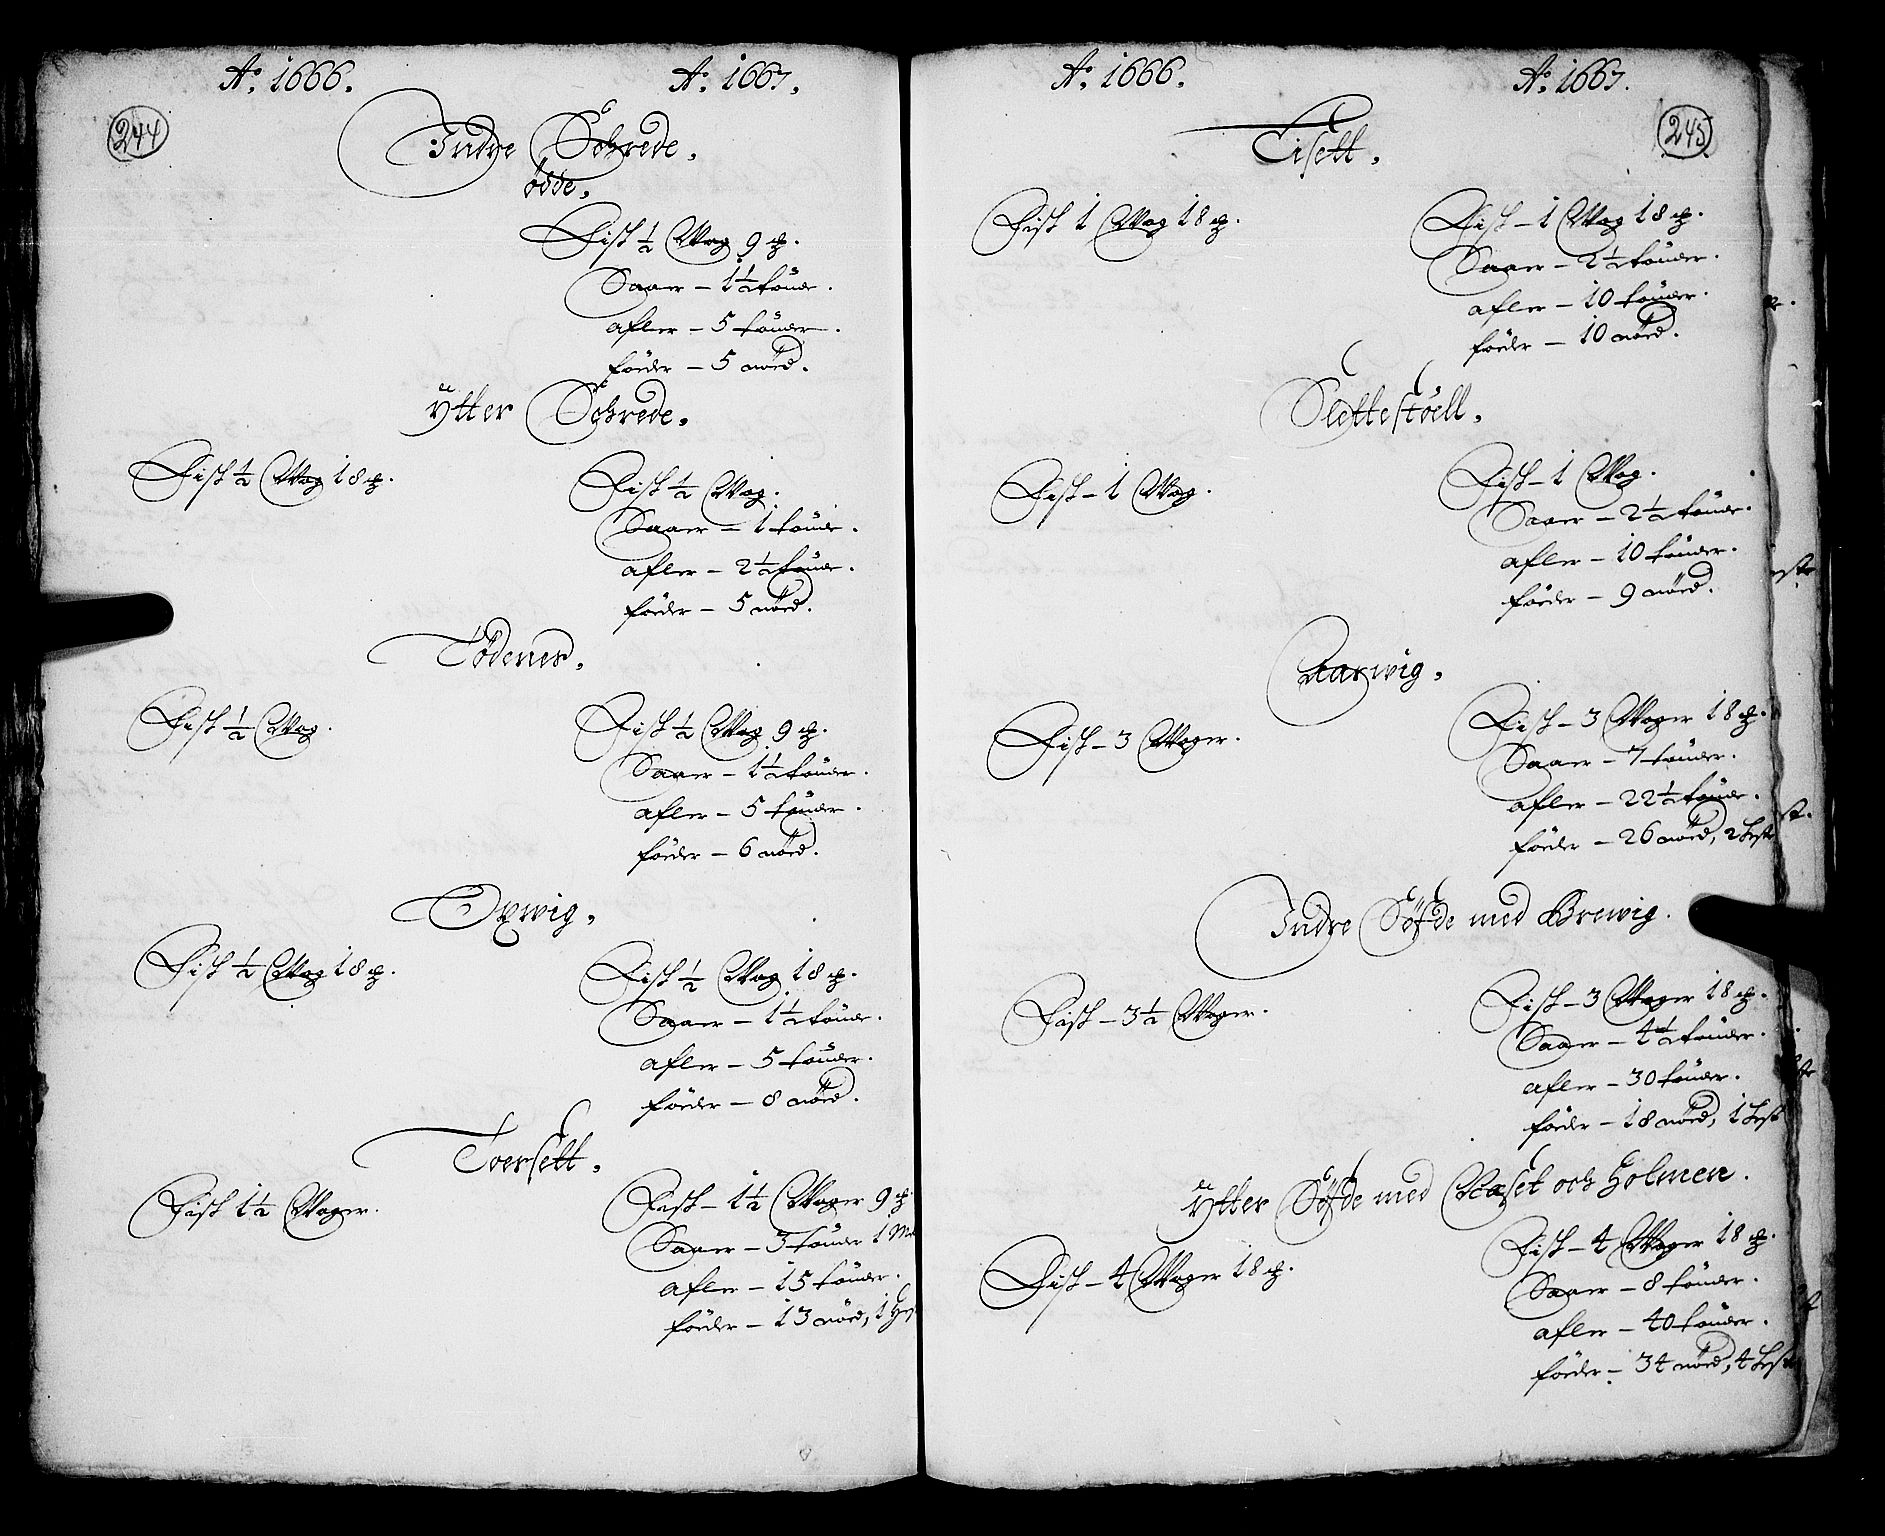 Ao. 1666. Ao. 1667.
244
Indre Schrede.
ödde.
Fisk ½ Wog 9 ℔.
Saaer – 1½ tönde.
afler – 5 tönder.
föeder – 5 nöed.
Ytter Schrede.
Fisk ½ Wog 18 ℔. Fisk ½ Wog.
Saaer – 1 tönde.
afler – 2½ tönde.
föeder – 5 nöed.
Tödenes.
Fisk ½ Wog. Fisk ½ Wog 9 ℔.
Saaer – 1½ tönder.
afler – 5 tönder.
föeder – 6 nöed.
Oxwig.
Fisk ½ Wog 18 ℔. Fisk ½ Wog 18 ℔.
Saaer – 1½ tönde.
afler – 5 tönder.
föeder – 8 nöed.
Toersett.
Fisk 1½ Woger. Fisk – 1½ Woger 9 ℔
Saaer – 3 tönder 1
afler – 15 tönder.
föeder – 13 nöed, 1
Ao. 1666. Ao. 1667.
245
Eisett.
Fisk 1 Wog 18 ℔. Fisk – 1 Wog 18 ℔.
Saaer – 2½ tönder.
afler – 10 tönder.
föeder – 10 nöed.
Slettestöell.
Fisk – 1 Wog. Fisk – 1 Wog.
Saaer – 2½ tönde.
afler – 10 tönder.
föeder – 9 nöed.
Aarwig.
Fisk – 3 Woger. Fisk – 3 Woger 18 ℔.
Saaer – 7 tönder.
afler – 22½ tönde.
föeder – 26 nöed, 2 heste
Indre Söfde med Brewig.
Fisk – 3½ Woger. Fisk – 3 Woger 18 ℔.
Saaer – 4½ tönder.
afler – 30 tönder.
föeder – 18 nöed, 1 hest
Ytter Söfde med Aaset och Holmen.
Fisk – 4 Woger 18 ℔. Fisk – 4 Woger 18 ℔.
Saaer – 8 tönder.
afler – 40 tönder.
föeder – 34 nöed, 4 heste